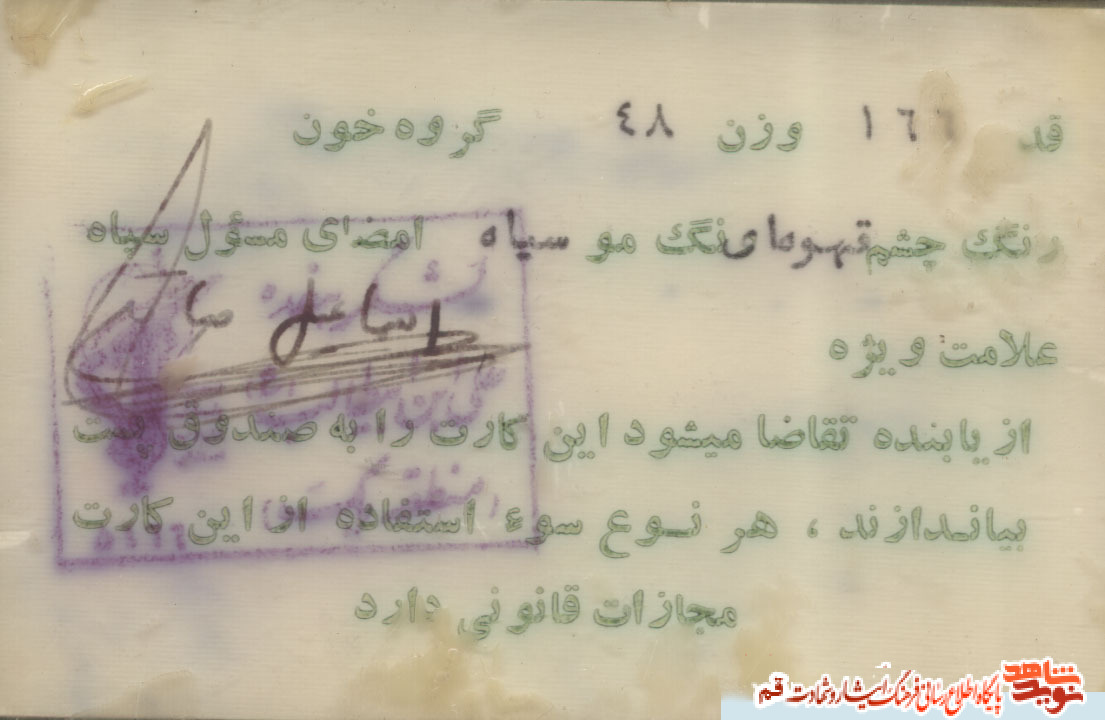 قد ١٦٦ وزن ٤٨ گروه خون
رنگ چشم قهوه‌ای رنگ مو سیاه امضای مسؤل سپاه
اسماعیل صا
علامت ویژه
از یابنده تقاضا میشود این کارت را به صندوق پست
بیاندازند ، هر نوع سوء استفاده از این کارت
مجازات قانونی دارد
نوید شاهد
پایگاه اطلاع رسانی فرهنگ ایثار و شهادت قم